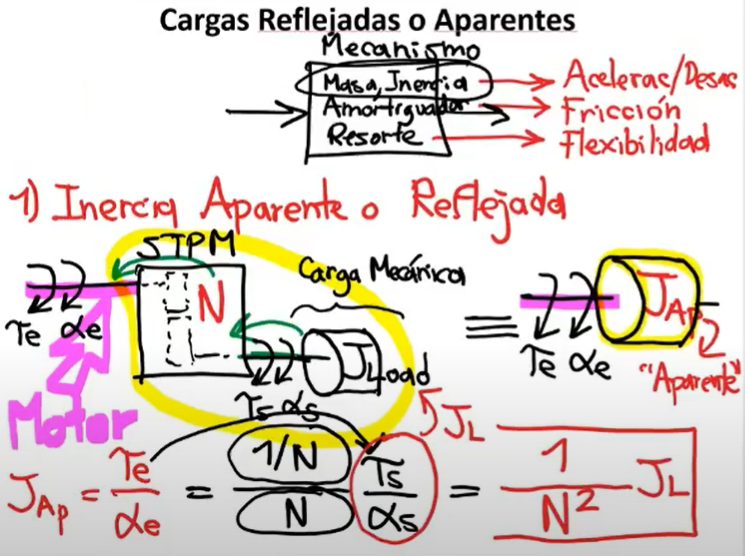 Cargas Reflejadas o Aparentes
Mecanismo
Masa, Inercia → Acelerac/Desac
Amortiguador → Fricción
Resorte → Flexibilidad
1) Inercia Aparente o Reflejada
STPM
N
Carga Mecánica
JLoad
Te αe
Ts αs
Motor
≡
JAp
Te αe
"Aparente"
JL
JAp = Te/αe = (1/N)/N Ts/αs = 1/N² JL